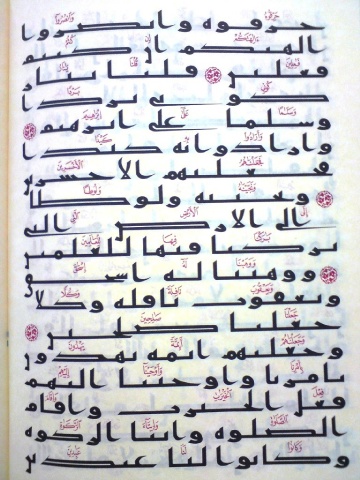 حرقوه وانصروا
الهتكم ان كنتم
فعلين قلنا ينار
كوني بردا
وسلما على ابرهيم
وارادوا به كيدا
فجعلنهم الاخسرين
ونجينه ولوطا
الى الارض التي
بركنا فيها للعلمين
ووهبنا له اسحق
ويعقوب نافلة وكلا
جعلنا صلحين
وجعلنهم ائمة يهدون
بامرنا واوحينا اليهم
فعل الخيرت واقام
الصلوة وايتا الزكوة
وكانوا لنا عبدين